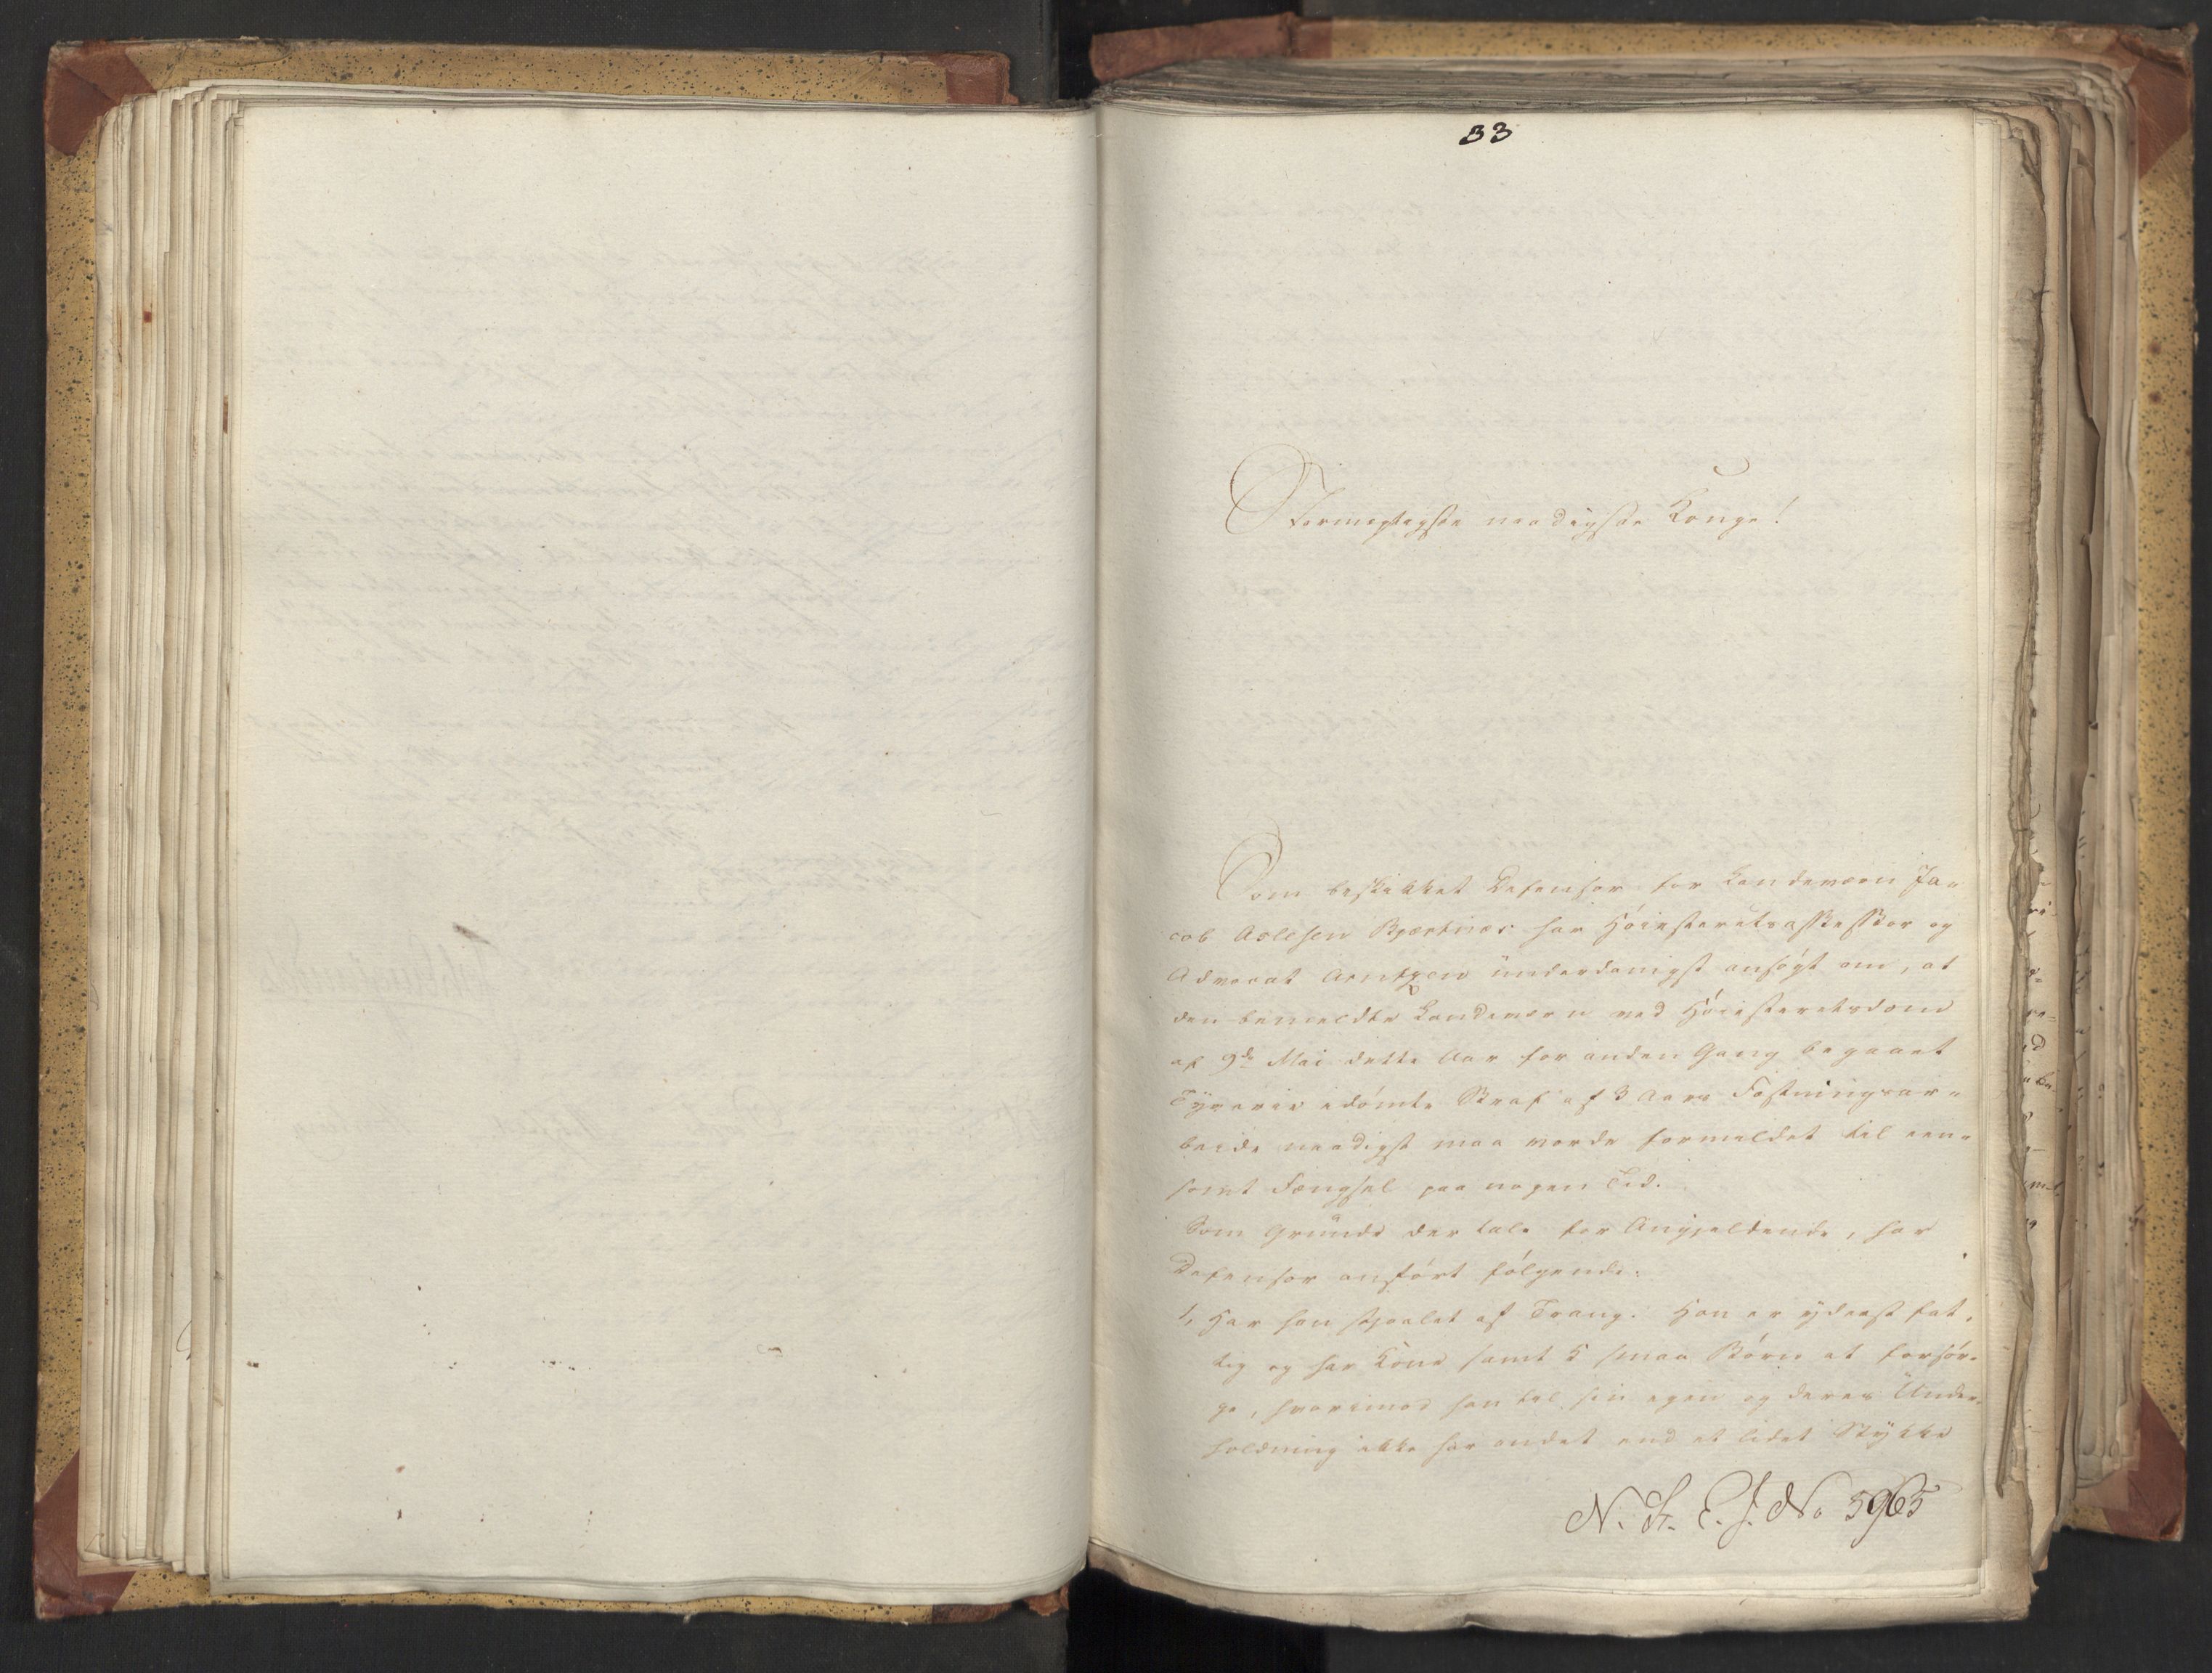 33
Stormægtigste naadigste Konge!
Som beskikket Defensor for Landeværn Ja-
cob Aslesen har Høiesteretsassessor og
Advocat Arntzen underdanigst ansøgt om, at
den bemeldte Landeværn ved Høiesteretsdom
af 9de Mai dette Aar for anden Gang begaaet
Tyverie idømte Straf af 3 Aars Fæstningsar-
beide naadigst maa vorde formildet til een-
somt Fængsel paa nogen Tid.
Som Grunde der tale for Angjeldende, har
Defensor anført følgende:
1, Har han stjaalet af Trang. Han er yderst fat-
tig og har Kone samt 5 smaa Børn at forsør-
ge, hvorimod han til sin egen og deres Under-
holdning ikke har andet end et lidet Stykke
N. St. E. J. No 5965